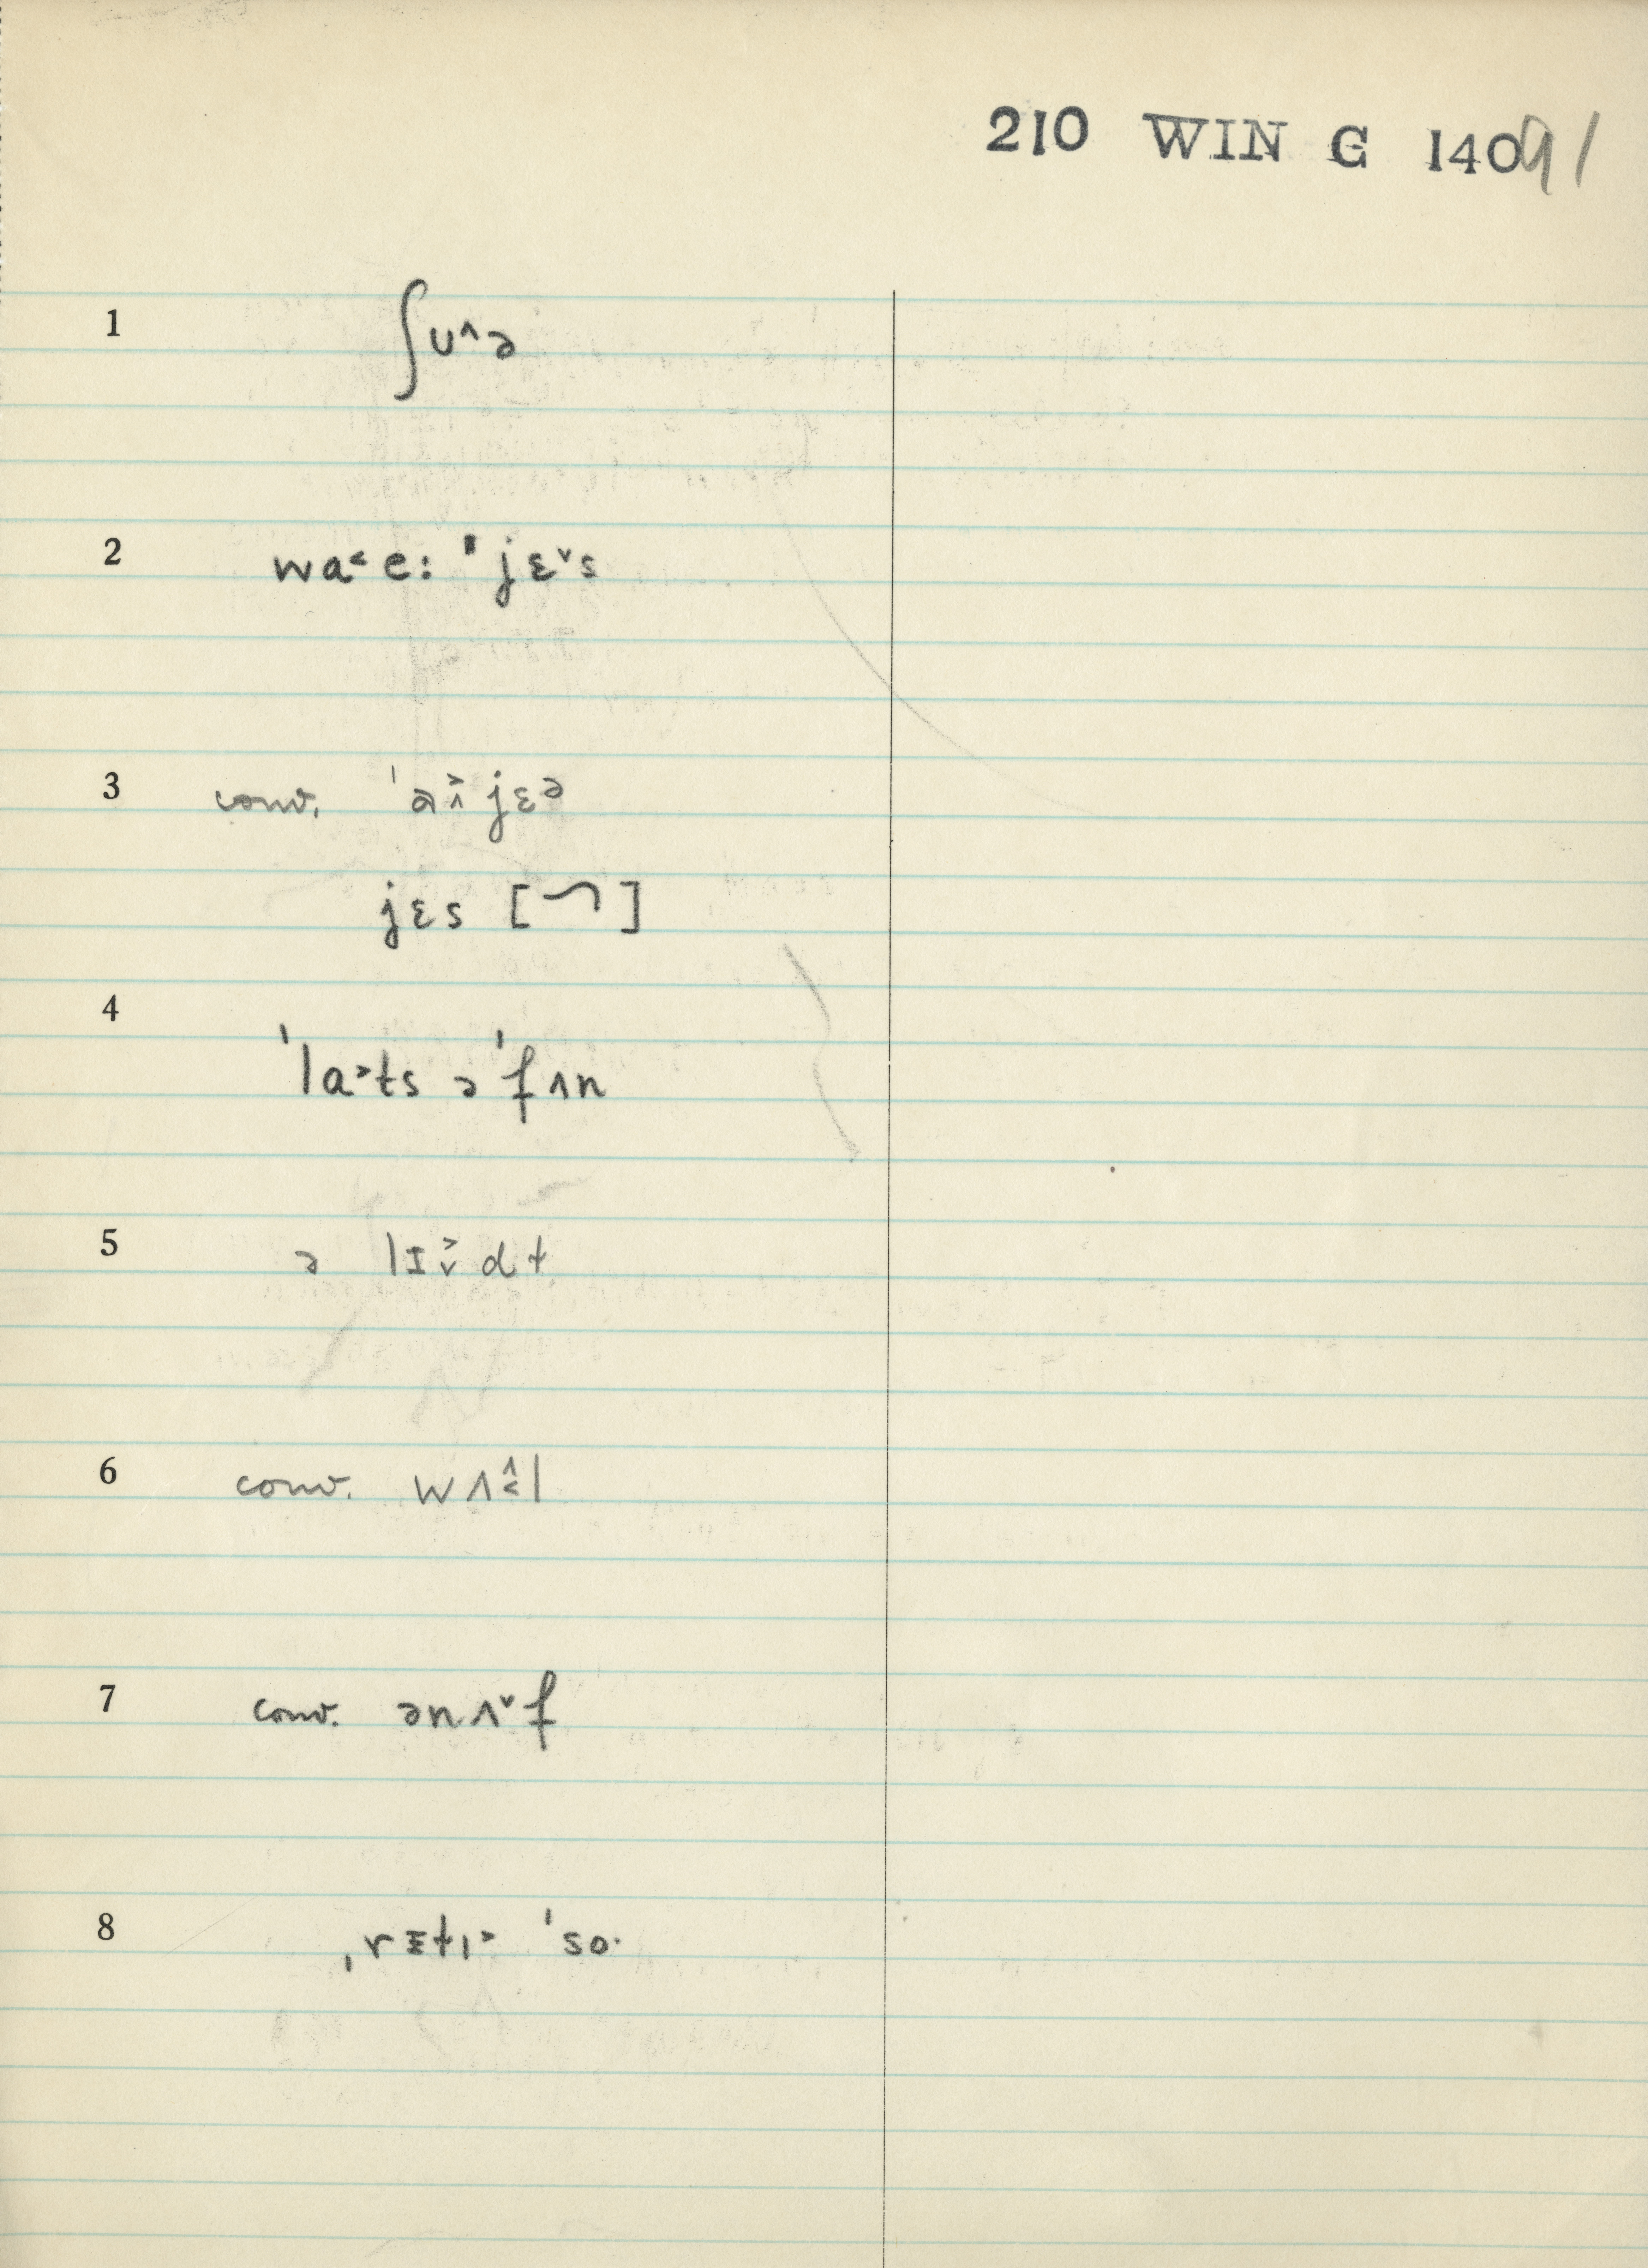 210 WIN G 14091
1 ʃʊ˄ə
2 wa˂e: ˈjɛ˅s
3 conv. ˈa˄˃jɛə
jɛs [⁓]
4
ˈla˃ts əˈfʌn
5 ə lɪ˅˃dɫ
6 conv. wʌ˄˂l
7 conv. ənʌ˅f
8 ˌrɪtɪ˃ ˈso·